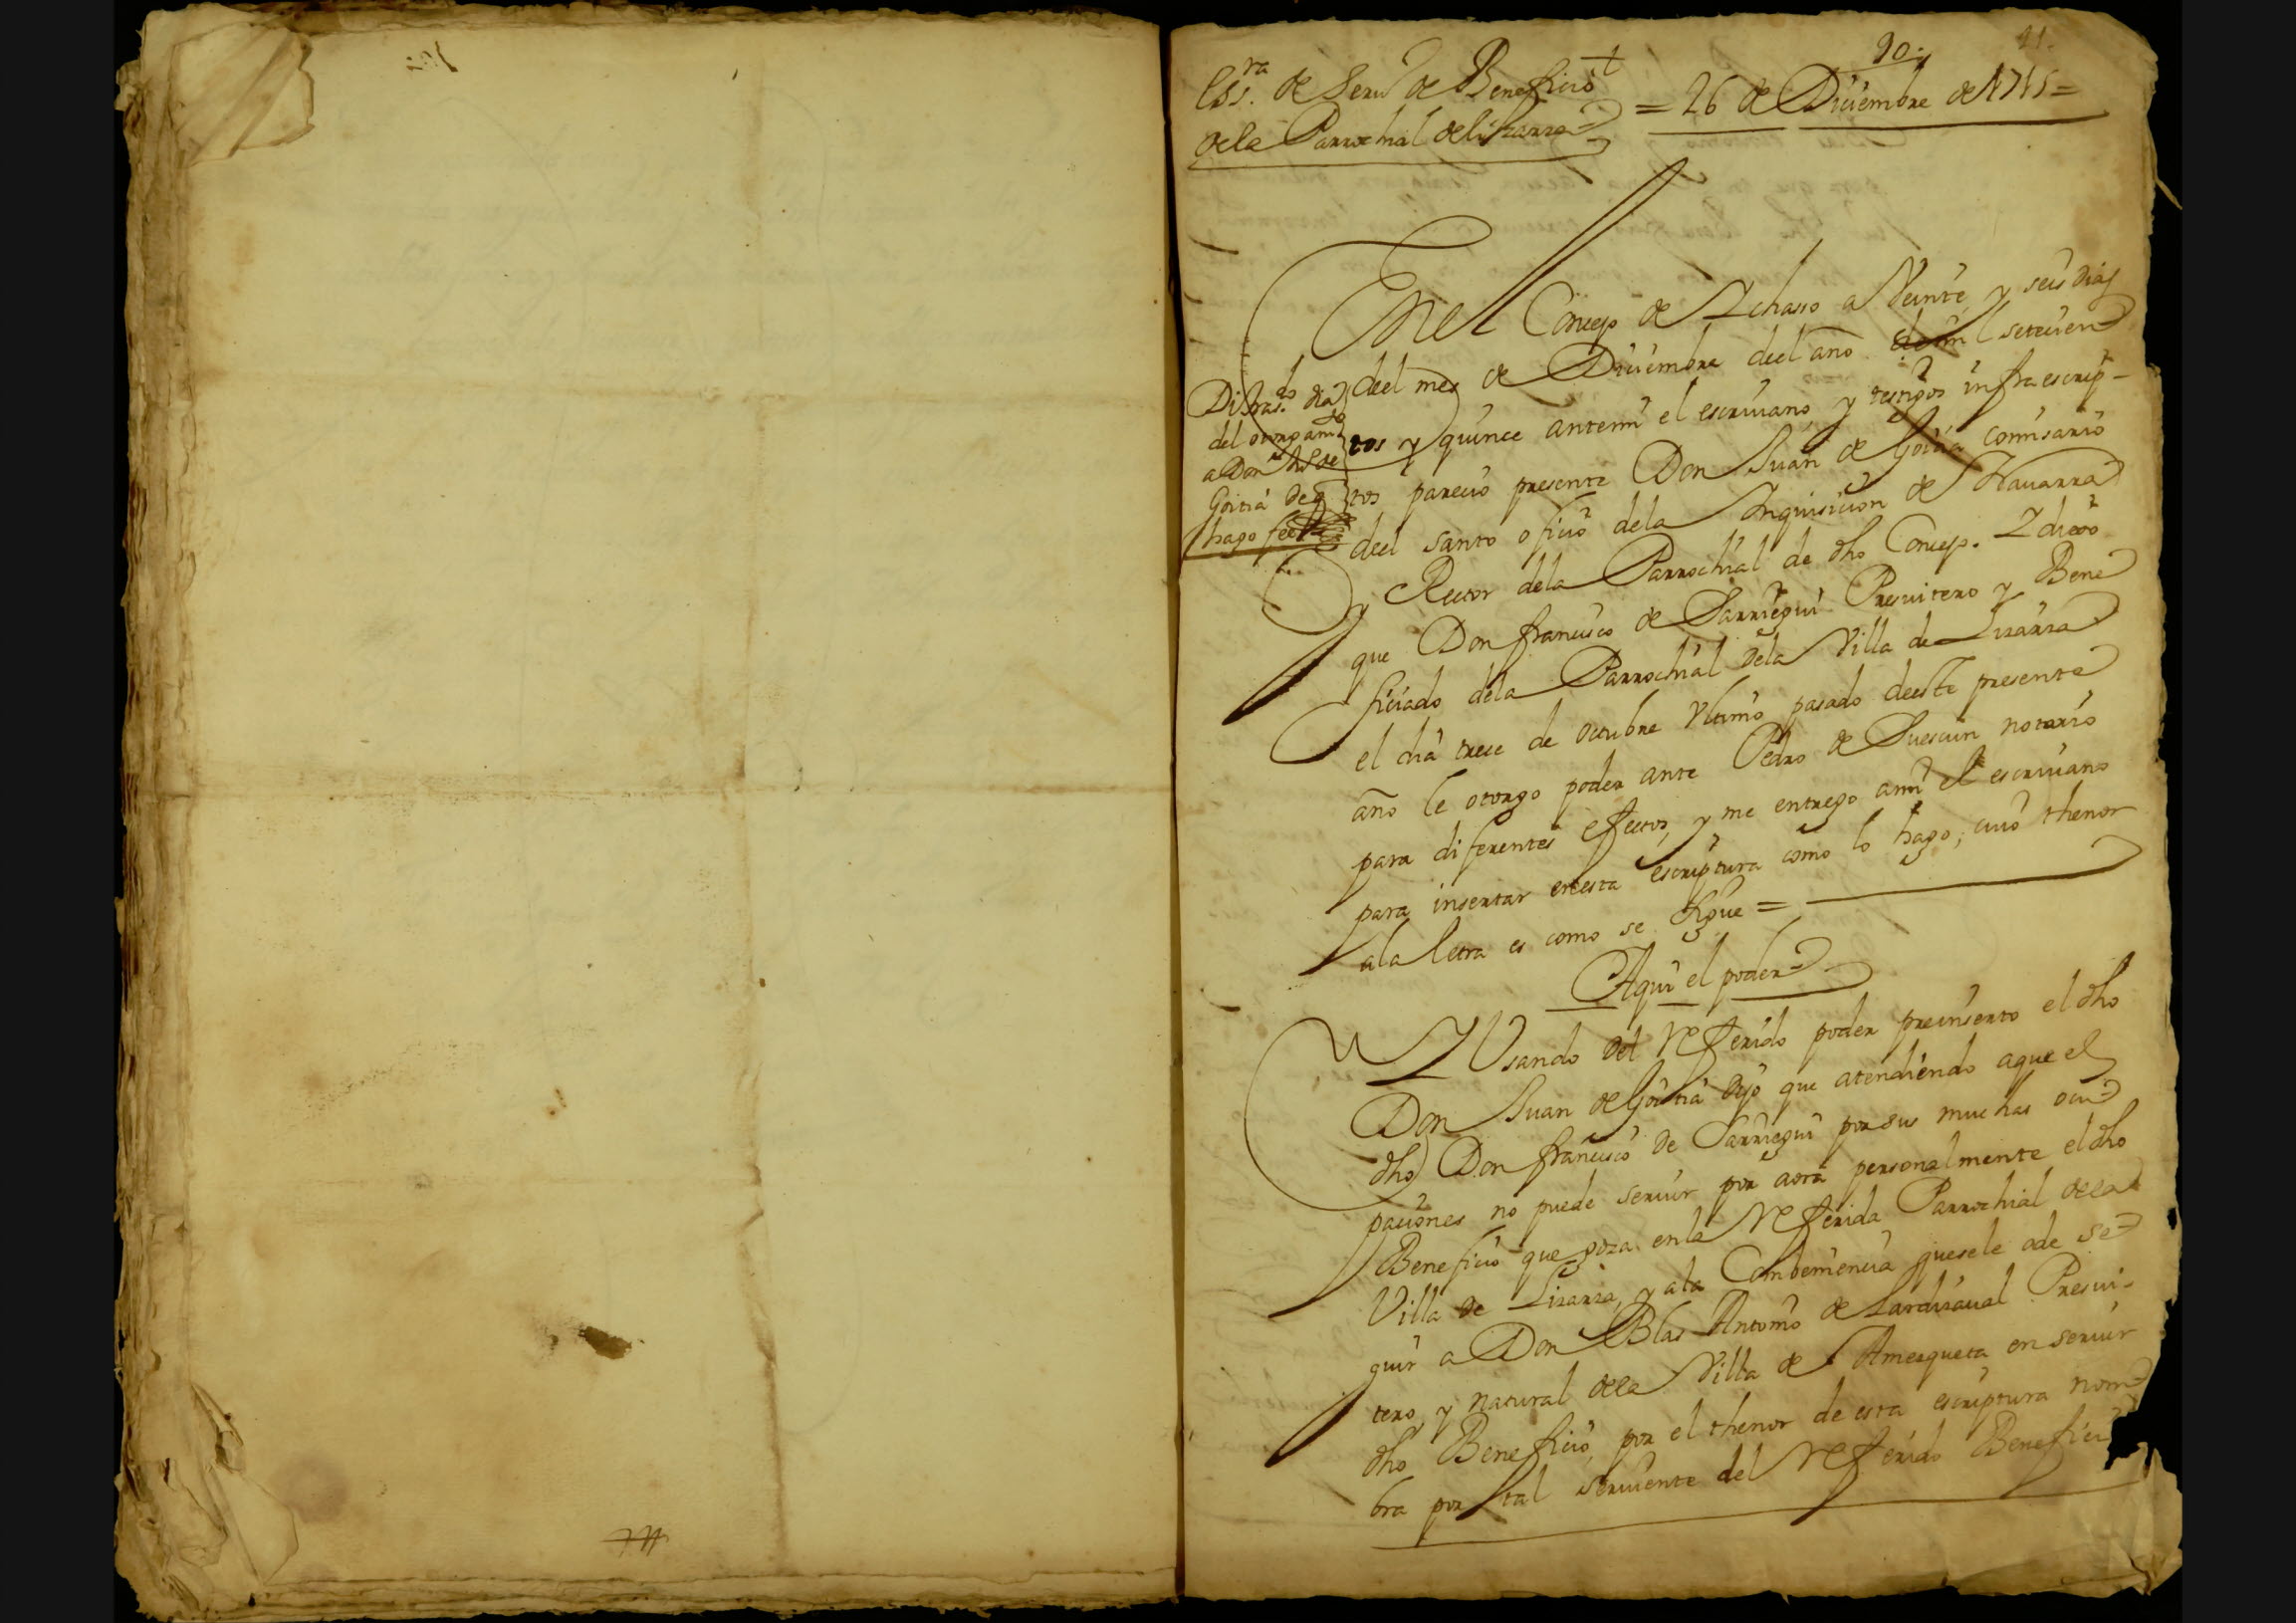 90
91
Ess.ra de Seru.o de Beneficio
de la Parrochial de Lizarza
= 26 de Diciembre de 1715 =
En el Concejo de Ichasso a Veinte y seis dias
deel mes de Diciembre deel año de mil setecien
tos y quince antemi el escriuano y testigos infraescrip-
tos parecio presente Don Juan de Goitia comisario
deel santo oficio dela Inquisicion de Nauarra
y Rector dela Parrochial de dho Concejo. Y dixo
que Don francisco de Sarriegui Presuitero y Bene
ficiado dela Parrochial dela Villa de Lizarza
el dia trece de octubre Vltimo pasado deeste presente
año le otorgo poder ante Pedro de Suescun notario
para diferentes efectos, y me entrego ami el escriuano
para insertar enesta escriptura como lo hago; cuio thenor
ala letra es como se sigue =
Aqui el poder
Y Vsando del referido poder preinserto el dho
Don Juan de Goitia dijo que atendiendo aque el
dho Don francisco de Sarriegui por sus muchas ocu
paciones no puede seruir por aora personalmente el dho
Beneficio que goza en la referida Parrochial dela
Villa de Lizarza, y ala Combeniencia quesele ade se
guir a Don Blas Antonio de Lardizaual Presui-
tero y natural dela Villa de Amezqueta en seruir
dho Beneficio, por el thenor de esta escriptura nom
bra por tal siruiente del referido Benefici
Di tras.do dia
del otorgam.to
a Don Ju.o de
Goitia de q
hago fee